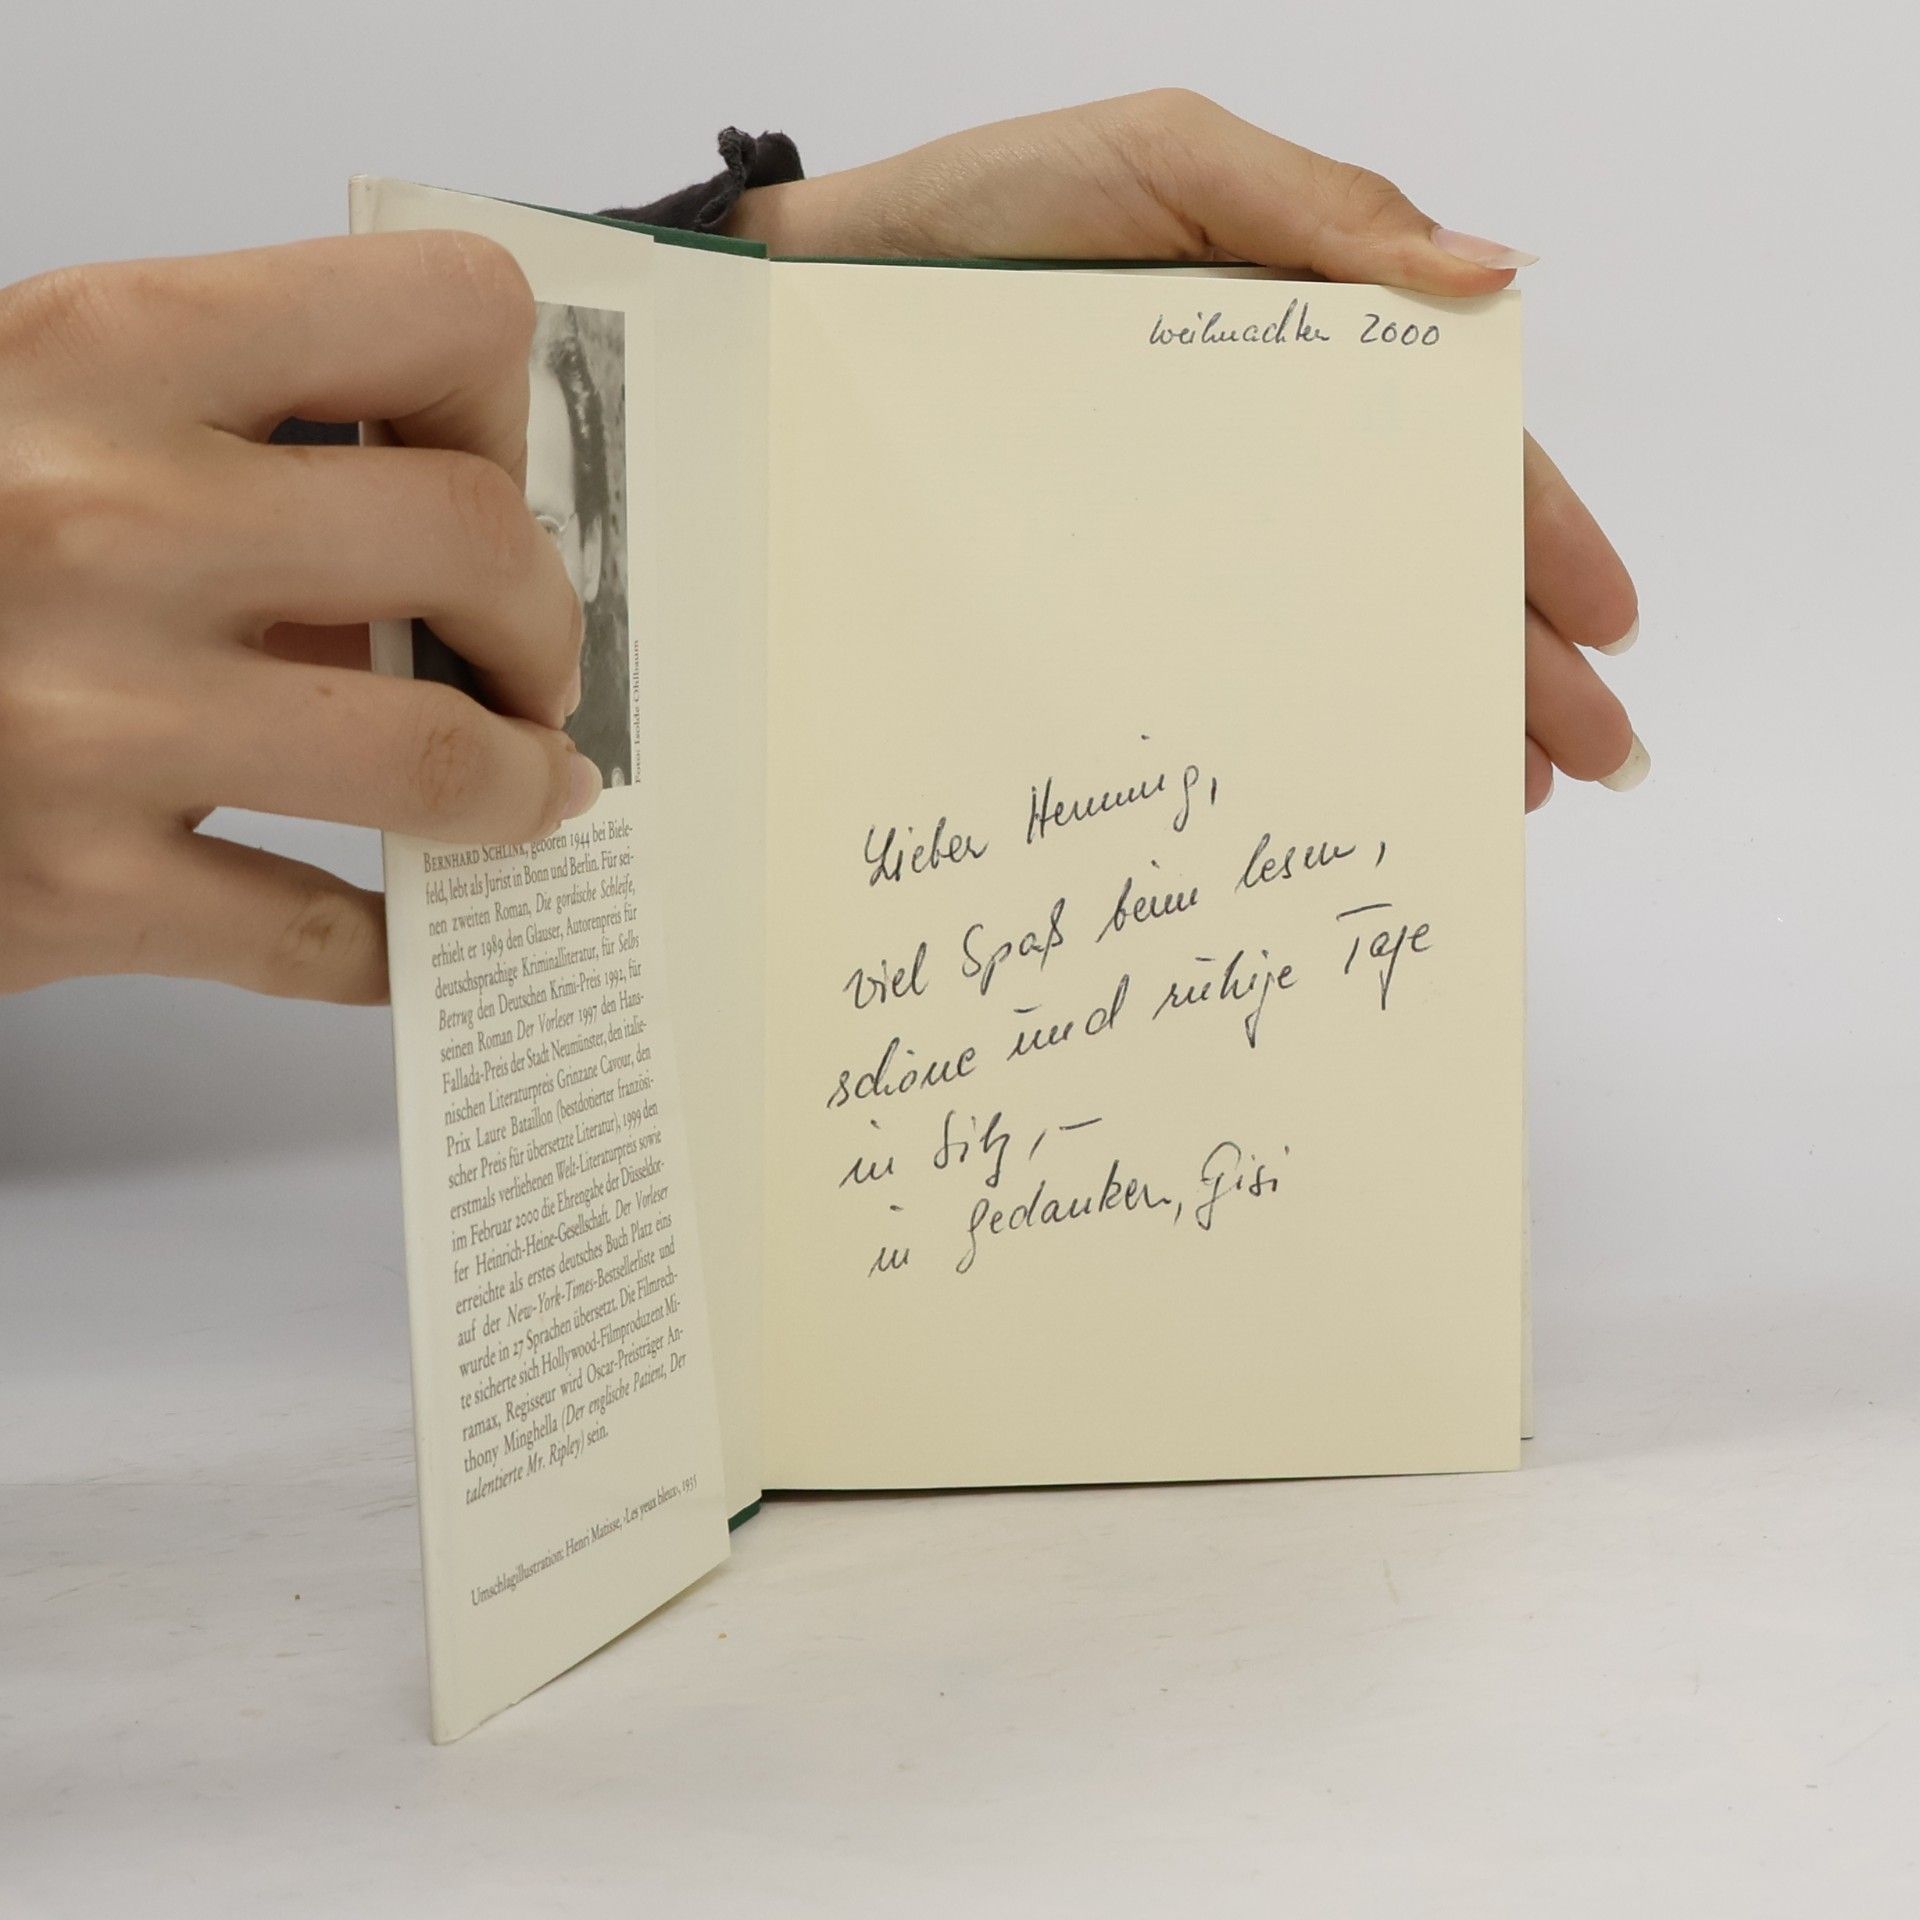 Foto: Isolde Ohlbaum
BERNHARD SCHLINK, geboren 1944 bei Biele-
feld, lebt als Jurist in Bonn und Berlin. Für sei-
nen zweiten Roman, Die gordische Schleife,
erhielt er 1989 den Glauser, Autorenpreis für
deutschsprachige Kriminalliteratur, für Selbs
Betrug den Deutschen Krimi-Preis 1992, für
seinen Roman Der Vorleser 1997 den Hans-
Fallada-Preis der Stadt Neumünster, den italie-
nischen Literaturpreis Grinzane Cavour, den
Prix Laure Bataillon (bestdotierter französi-
scher Preis für übersetzte Literatur), 1999 den
erstmals verliehenen Welt-Literaturpreis sowie
im Februar 2000 die Ehrengabe der Düsseldor-
fer Heinrich-Heine-Gesellschaft. Der Vorleser
erreichte als erstes deutsches Buch Platz eins
auf der New-York-Times-Bestsellerliste und
wurde in 27 Sprachen übersetzt. Die Filmrech-
te sicherte sich Hollywood-Filmproduzent Mi-
ramax, Regisseur wird Oscar-Preisträger An-
thony Minghella (Der englische Patient, Der
talentierte Mr. Ripley) sein.
Umschlagillustration: Henri Matisse, ›Les yeux bleux‹, 1935
Weihnachten 2000
Lieber Henning,
viel Spaß beim lesen,
schöne und ruhige Tage
in
in Gedanken, Gisi